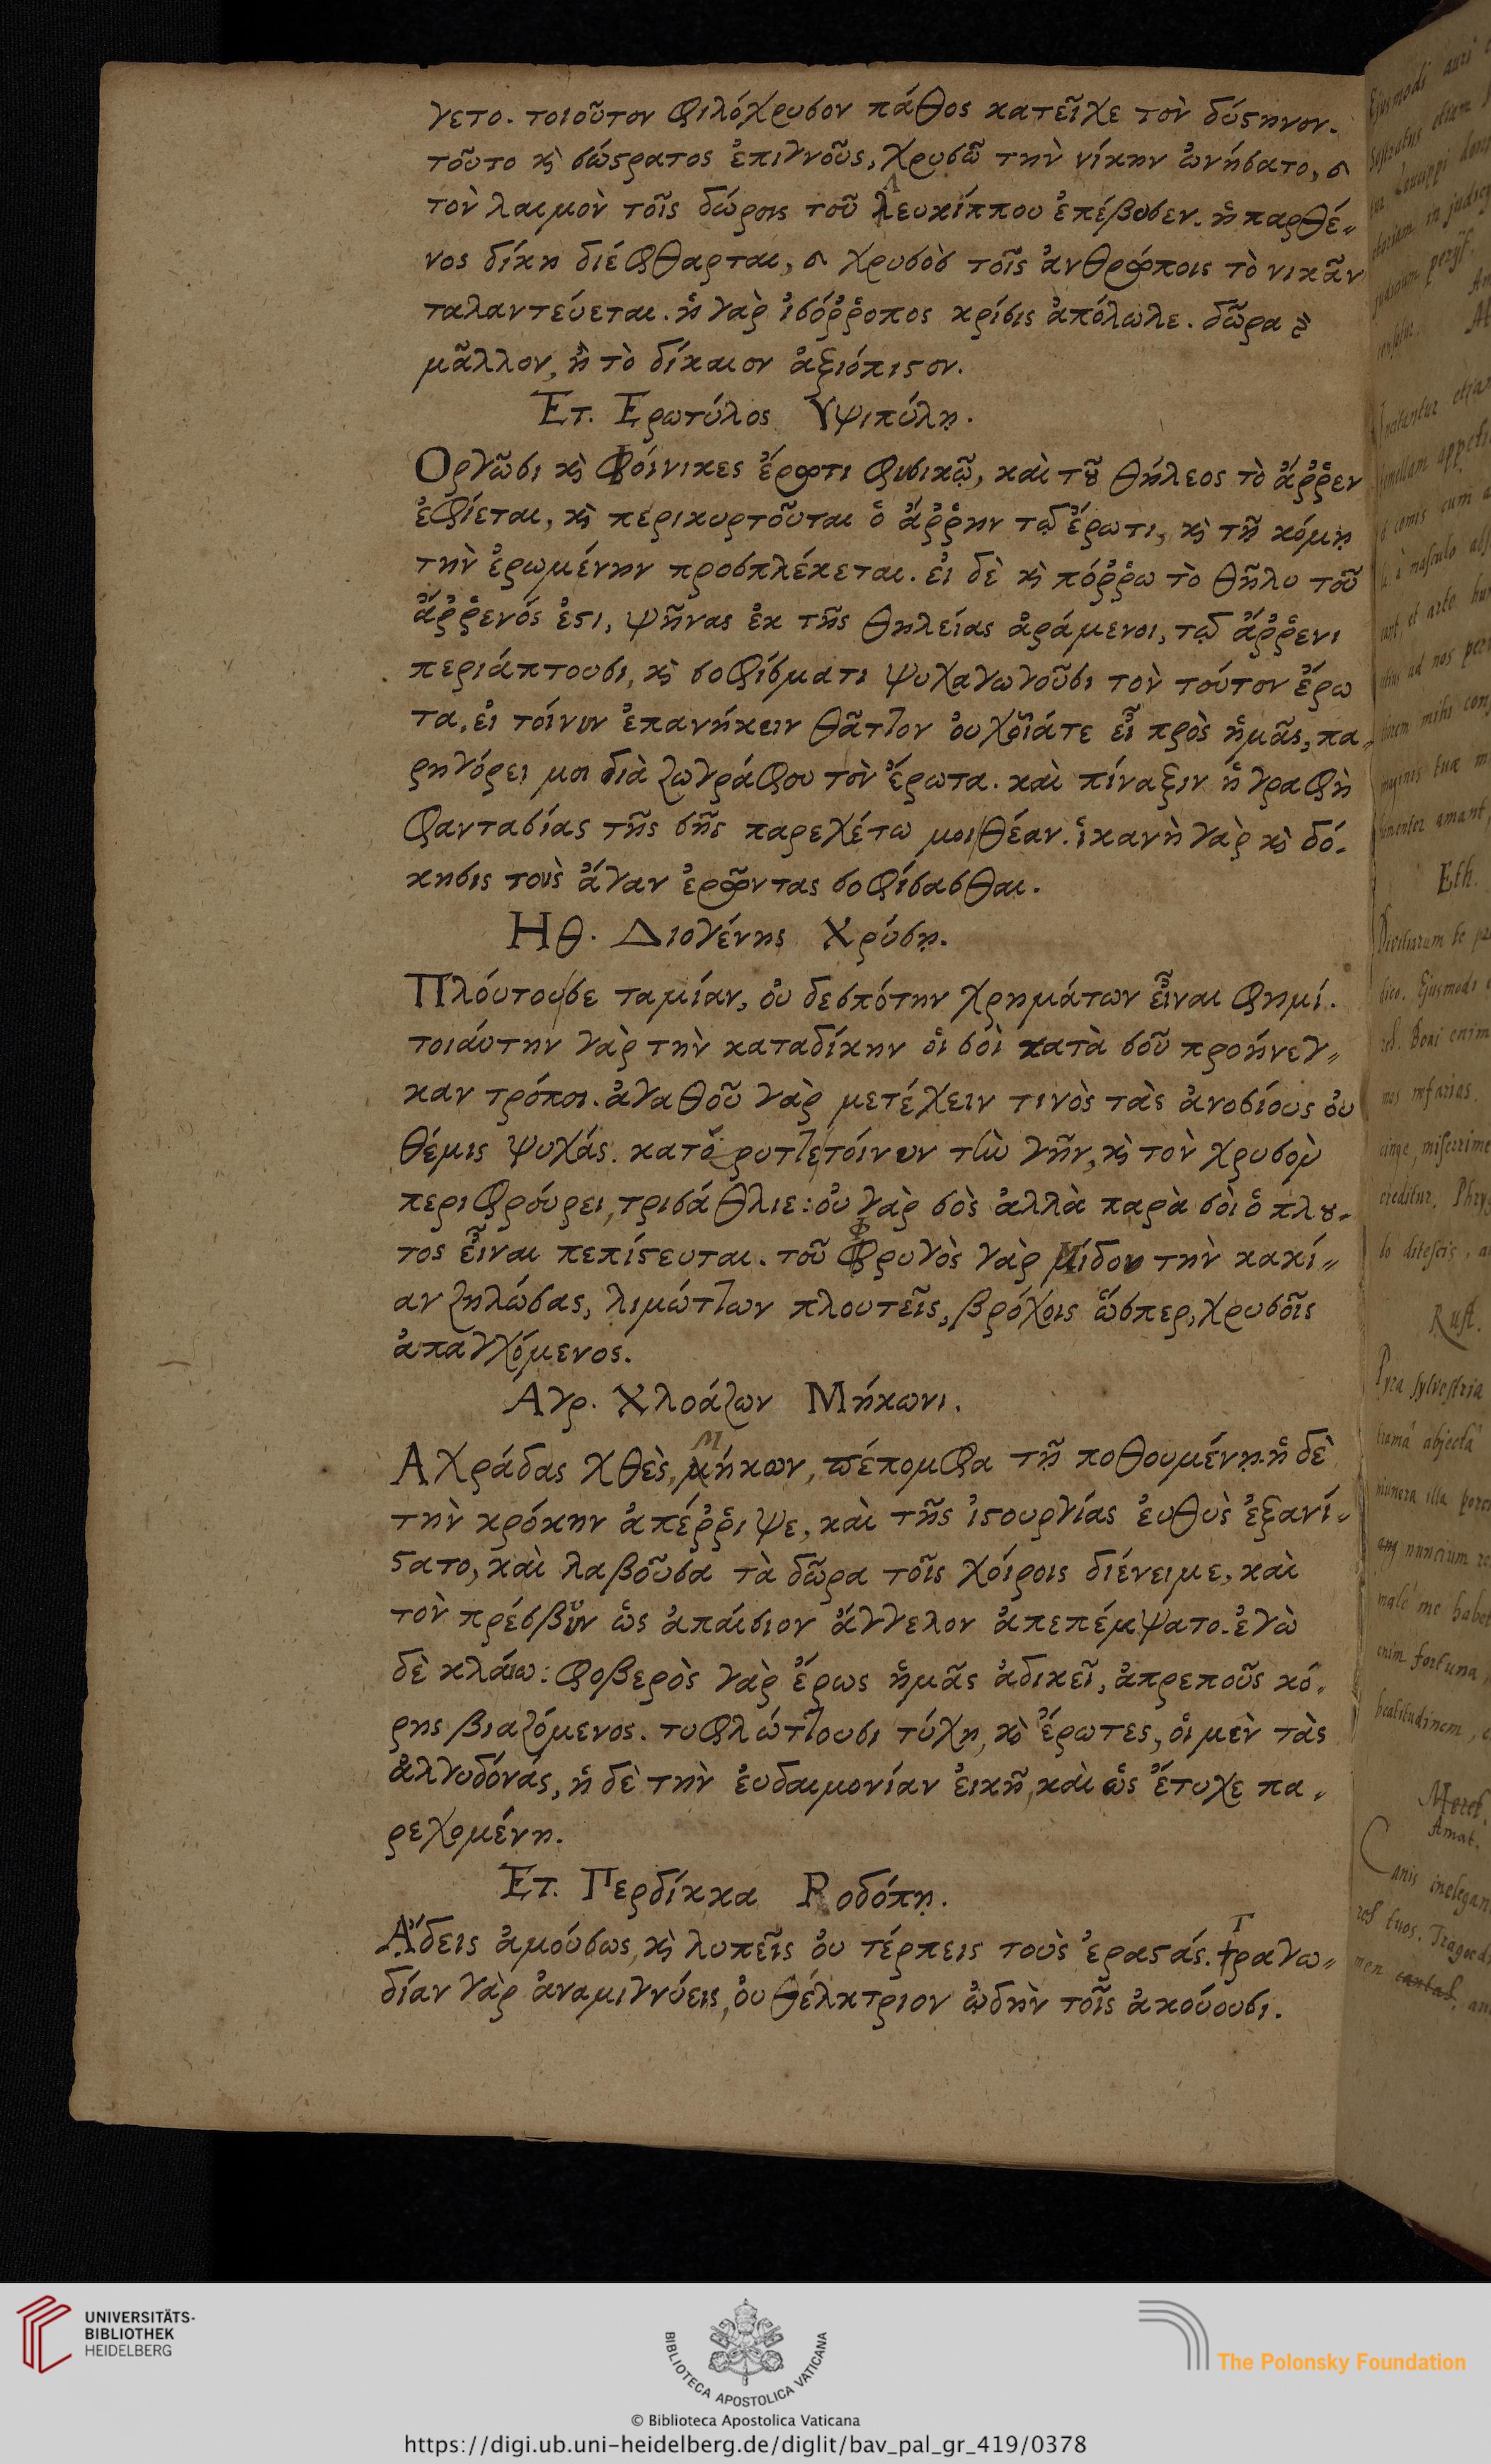 γετο. τοιοῦτον φιλόχρυσον πάθος κατεῖχε τὸν δύστηνον.
τοῦτο κὶ σώστρατος ἐπιγνοῦς, χρυσῶ τὴν νίκην ὠνήσατο, κὶ
τὸν λαιμὸν τοῖς δώροις τοῦ Λευκίππου ἐπέβυσεν. ἡ παρθέ-
νος δίκη διέφθαρται, κὶ χρυσὸς τοῖς ἀνθρώποις τὸ νικᾶν
ταλαντεύεται. ἡ γὰρ ἰσόῤῥοπος κρίσις ἀπόλωλε. δῶρα δὲ
μᾶλλον, ἢ τὸ δίκαιον ἀξιόπιστον.
Ετ. Ερωτύλος Υψιπύλῃ.
Οργῶσι κὶ Φοίνικες ἔρωτι φυσικῷ, καὶ τοῦ θήλεος τὸ ἄῤῥεν
ἐφίεται, κὶ περικυρτοῦται ὁ ἄῤῥην τῷ ἔρωτι, κὶ τῇ κόμῃ
τὴν ἐρωμένην προσπλέκεται. εἰ δὲ κὶ πόῤῥω τὸ θῆλυ τοῦ
ἄῤῥενός ἐστι, ψῆνας ἐκ τῆς θηλείας ἀράμενοι, τῷ ἄῤῥενι
περιάπτουσι, κὶ σοφίσματι ψυχαγωγοῦσι τὸν τούτον ἔρω
τα. εἰ τοίνυν ἐπανήκειν θᾶττον οὐχ οἷάτε εἶ πρὸς ἡμᾶς, πα-
ρηγόρει μοι διὰ ζωγράφου τὸν ἔρωτα. καὶ πίναξιν ἡ γραφὴ
φαντασίας τῆς σῆς παρεχέτω μοι θέαν. ἱκανὴ γὰρ κὶ δό-
κησις τοὺς ἄγαν ἐρῶντας σοφίσασθαι.
Ηθ. Διογένης Χρύσῃ.
Πλούτου σε ταμίαν, οὐ δεσπότην χρημάτων εἶναι φημί.
τοιάυτην γὰρ τὴν καταδίκην οἱ σοὶ κατὰ σοῦ προήνεγ-
καν τρόποι. ἀγαθοῦ γὰρ μετέχειν τινὸς τὰς ἀνοσίους οὐ
θέμις ψυχάς. κατόρυττε τοίνυν τὴν γῆν, κὶ τὸν χρυσὸν
περιφρούρει, τρισάθλιε: οὐ γὰρ σὸς ἀλλὰ παρὰ σοὶ ὁ πλου-
τος εἶναι πεπίστευται. τοῦ Φρυγὸς γὰρ Μίδου τὴν κακί-
αν ζηλώσας, λιμώττων πλουτεῖς, βρόχοις ὥσπερ, χρυσοῖς
ἀπαγχόμενος.
Αγρ. Χλοάζων Μήκωνι.
Αχράδας χθὲς, Μήκων, πέπομφα τῇ ποθουμένῃ. ἡ δὲ
τὴν κρόκην ἀπέῤῥιψε, καὶ τῆς ἱστουργίας ἐυθὺς ἐξανί-
στατο, καὶ λαβοῦσα τὰ δῶρα τοῖς χοίροις διένειμε, καὶ
τὸν πρέσβυν ὡς ἀπαίσιον ἄγγελον ἀπεπέμψατο. ἐγὼ
δὲ κλάιω: φοβερὸς γὰρ ἔρως ἡμᾶς ἀδικεῖ, ἀπρεποῦς κό-
ρης βιαζόμενος. τυφλώττουσι τύχη, κὶ ἔρωτες, οἱ μὲν τὰς
ἀλγυδόνάς, ἡ δὲ τὴν ἐυδαιμονίαν ἐικῆ, καὶ ὡς ἔτυχε πα-
ρεχομένη.
Ετ. Περδίκκα Ροδόπῃ.
ᾌδεις ἀμούσως, κὶ λυπεῖς οὐ τέρπεις τοὺς ἐραστάς. Τραγω-
δίαν γὰρ ἀναμιγνύεις, οὐ θέλκτριον ᾠδὴν τοῖς ἀκούουσι.
Eth.
Rust.
Amat.
UNIVERSITÄTS-
BIBLIOTHEK
HEIDELBERG
BIBLIOTECA APOSTOLICA VATICANA
The Polonsky Foundation
© Biblioteca Apostolica Vaticana
https://digi.ub.uni-heidelberg.de/diglit/bav_pal_gr_419/0378